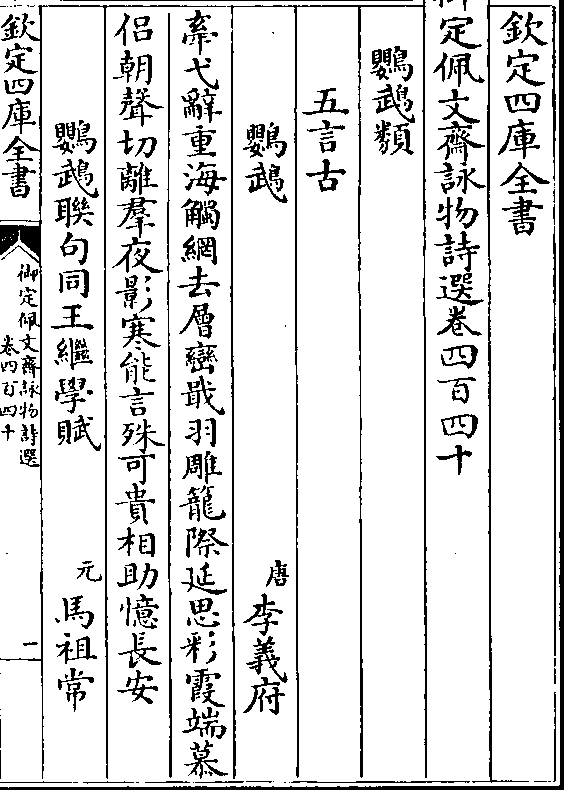 欽定四庫全書
御定佩文齋詠物詩選卷四百四十
鸚鵡類
五言古
鸚鵡 唐 李義府
牽弋辭重海觸網去層巒戢羽雕籠際延思彩霞端慕
侣朝聲切離羣夜影寒能言殊可貴相助憶長安
鸚鵡聯句同王繼學賦 元 馬祖常
欽定四庫全書
御定佩文齋詠物詩選
卷四百四十
一